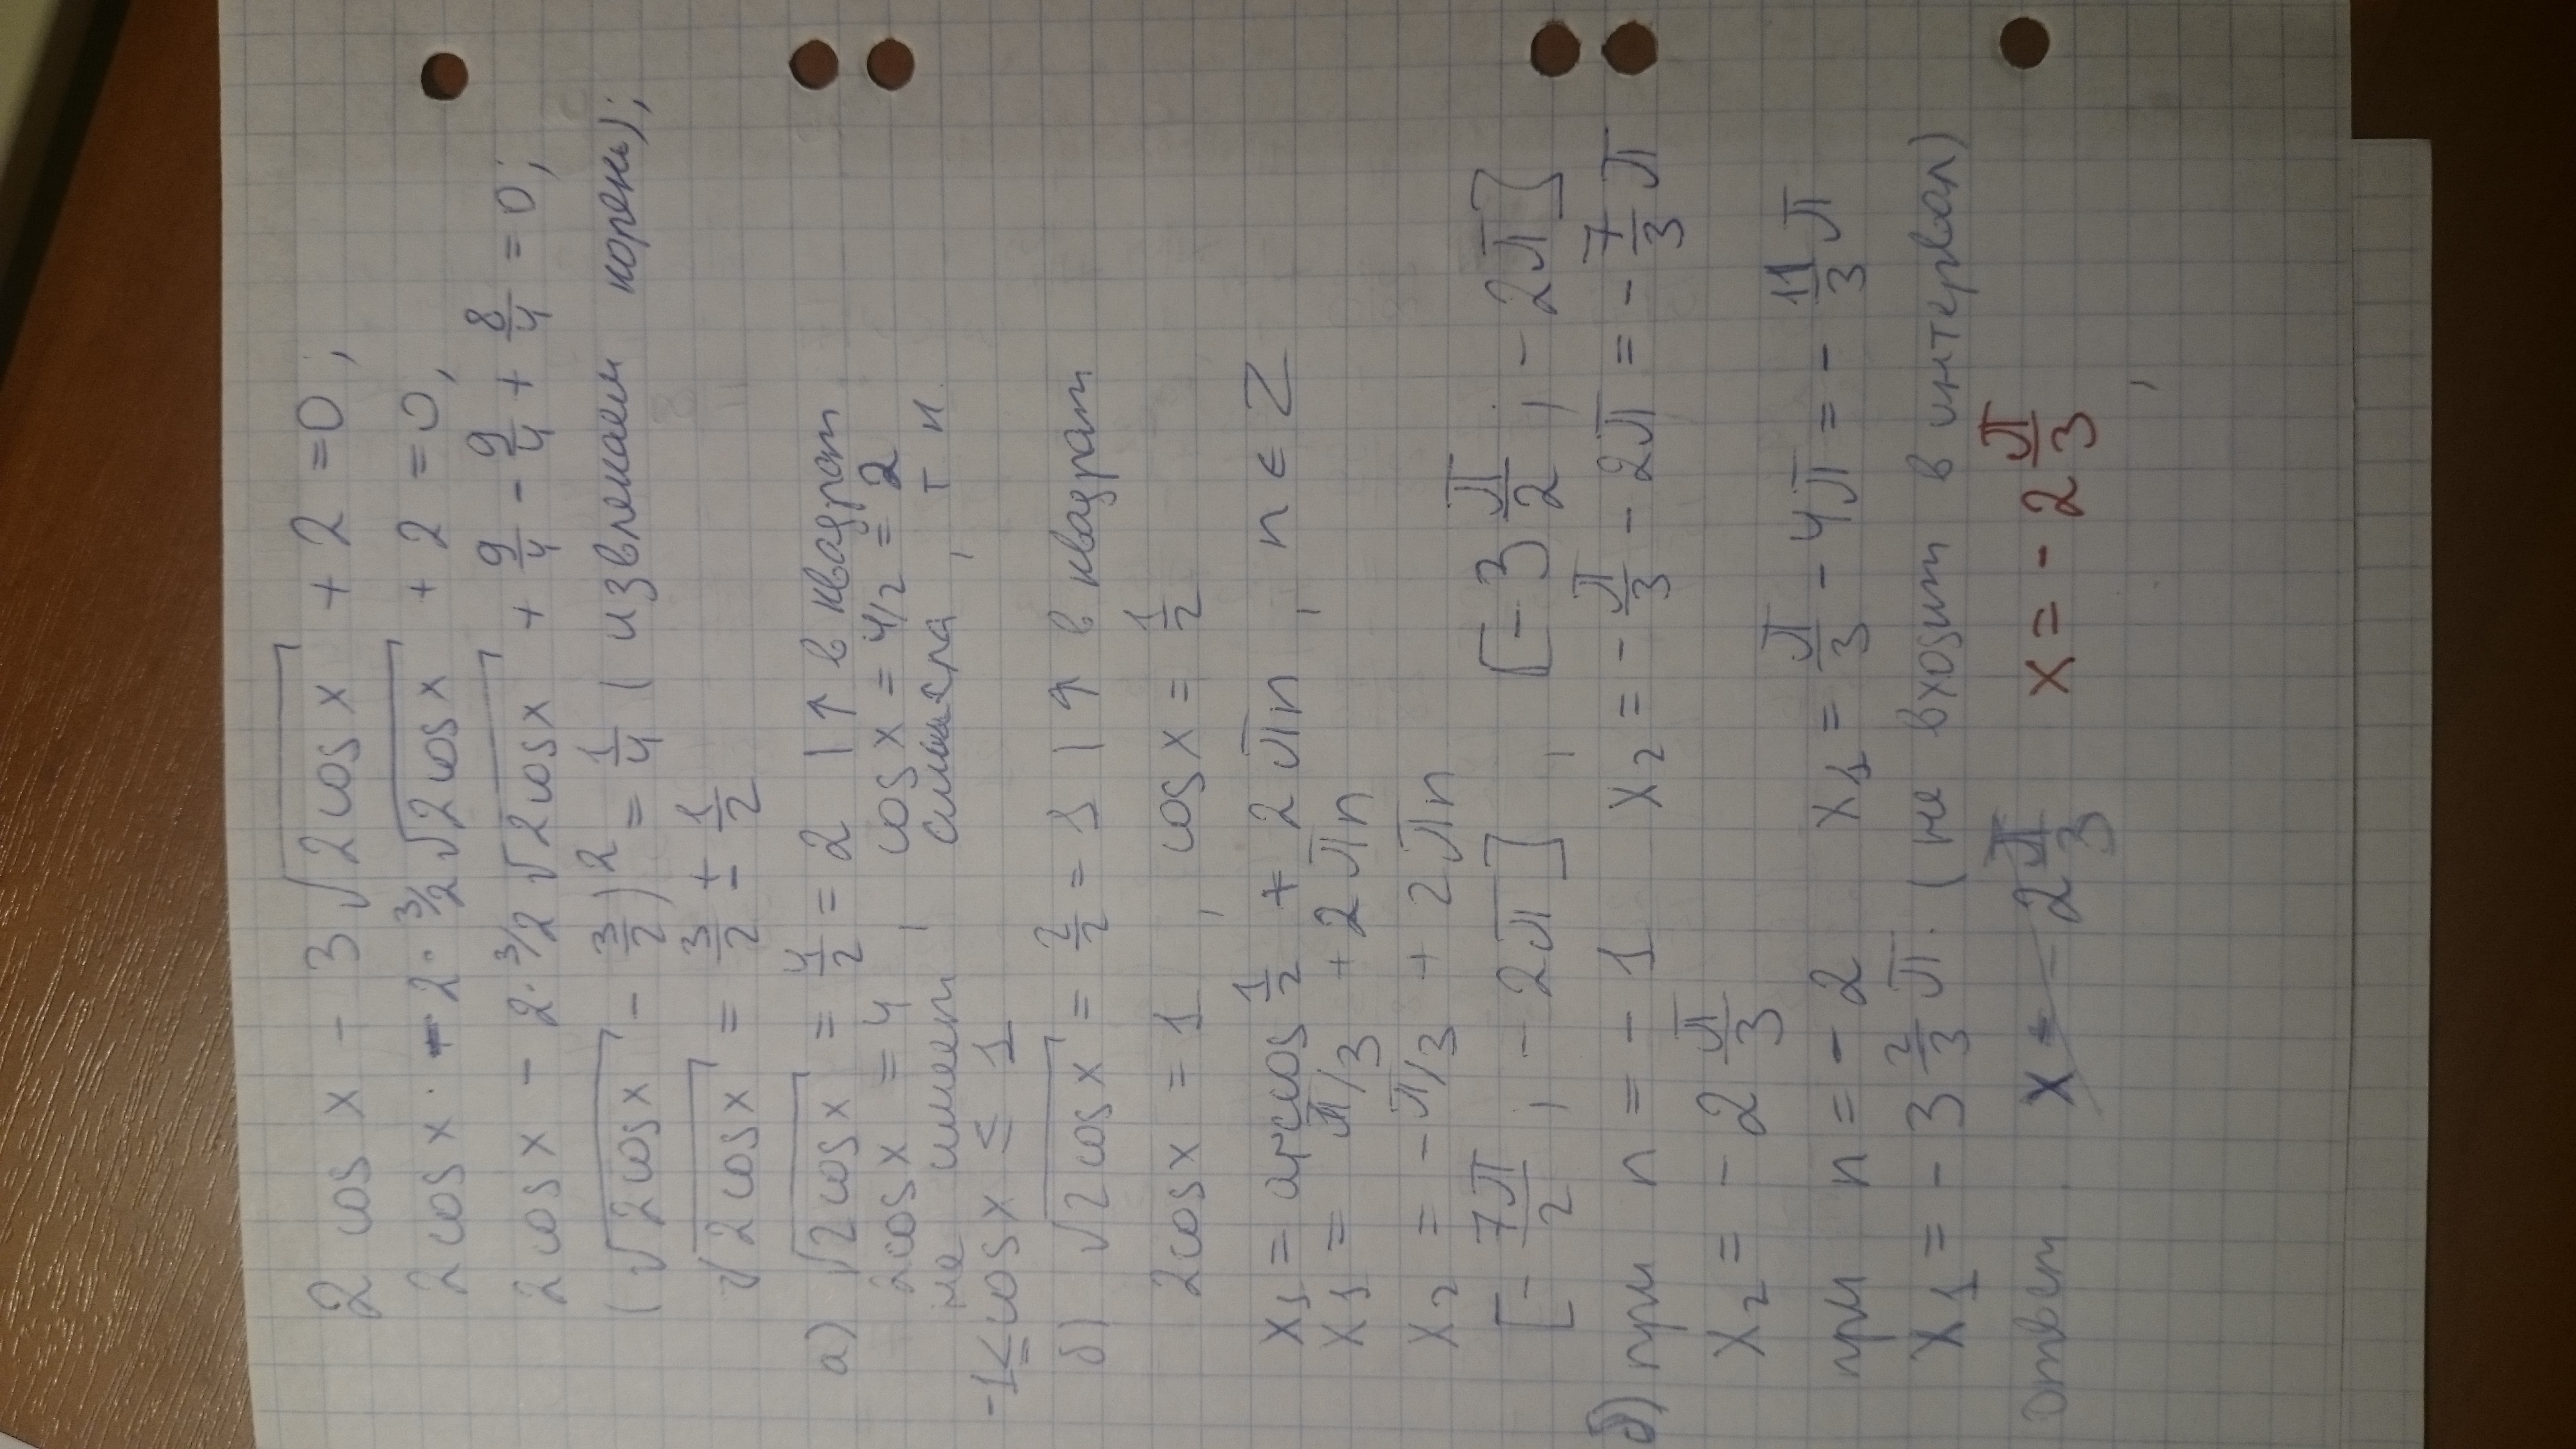 2 cos x - 3 √2cos x + 2 = 0;
2 cos x - 2 · 3/2 √2cos x + 2 = 0,
2 cos x - 2 · 3/2 √2cos x + 9/4 - 9/4 + 8/4 = 0;
(√2cos x - 3/2)² = 1/4 (извлекаем корень);
√2cos x = 3/2 ± 1/2
а) √2cos x = 4/2 = 2 | ↑ в квадрат
2cos x = 4, cos x = 4/2 = 2
не имеет смысла, т к
-1 ≤ cos x ≤ 1
б) √2cos x = 2/2 = 1 | ↑ в квадрат
2cos x = 1, cos x = 1/2
x₁ = arccos 1/2 + 2πn, n ∈ Z
x₁ = π/3 + 2πn
x₂ = - π/3 + 2πn
[- 7π/2, - 2π], [- 3 π/2, - 2π]
б) при n = - 1 x₂ = - π/3 - 2π = - 7/3 π
x₂ = - 2 π/3
при n = - 2 x₁ = π/3 - 4π = - 11/3 π
x₁ = - 3 2/3 π. (не входит в интервал)
Ответ x = - 2 π/3 x = - 2 π/3,